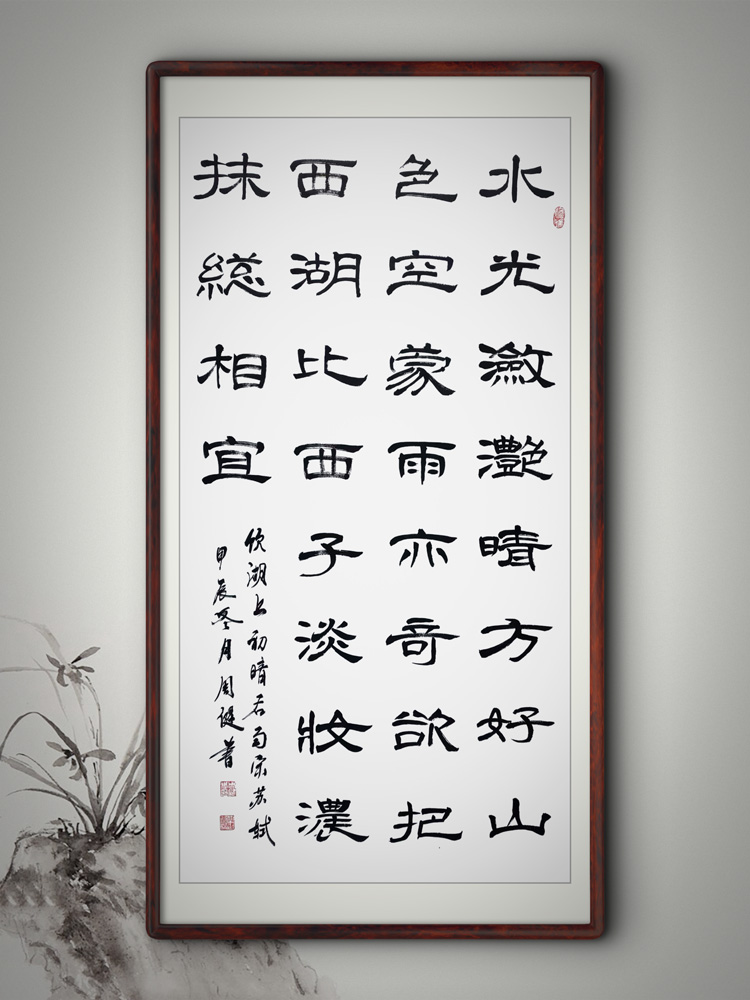 水光瀲灧晴方好山
色空蒙雨亦奇欲把
西湖比西子淡妝濃
抹総相宜
饮湖上初晴后雨宋苏轼
甲辰冬月周書